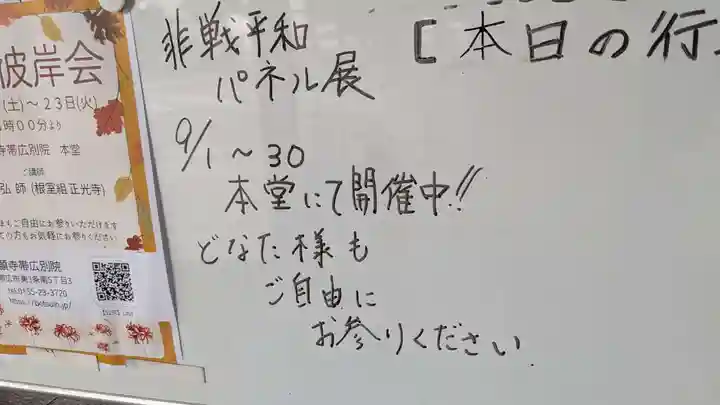 彼岸会
(土)～23日(火)
時00分より
寺帯広別院 本堂
ご講師
弘 師 (根室組 正光寺)
もご自由にお参りいただけます
の方もお気軽にお参りください
願寺帯広別院
帯広市東3条南5丁目3
tel.0155-23-3720
非戦平和
パネル展
9/1～30
本堂にて開催中!!
どなた様も
ご自由に
お参りください
[本日の行